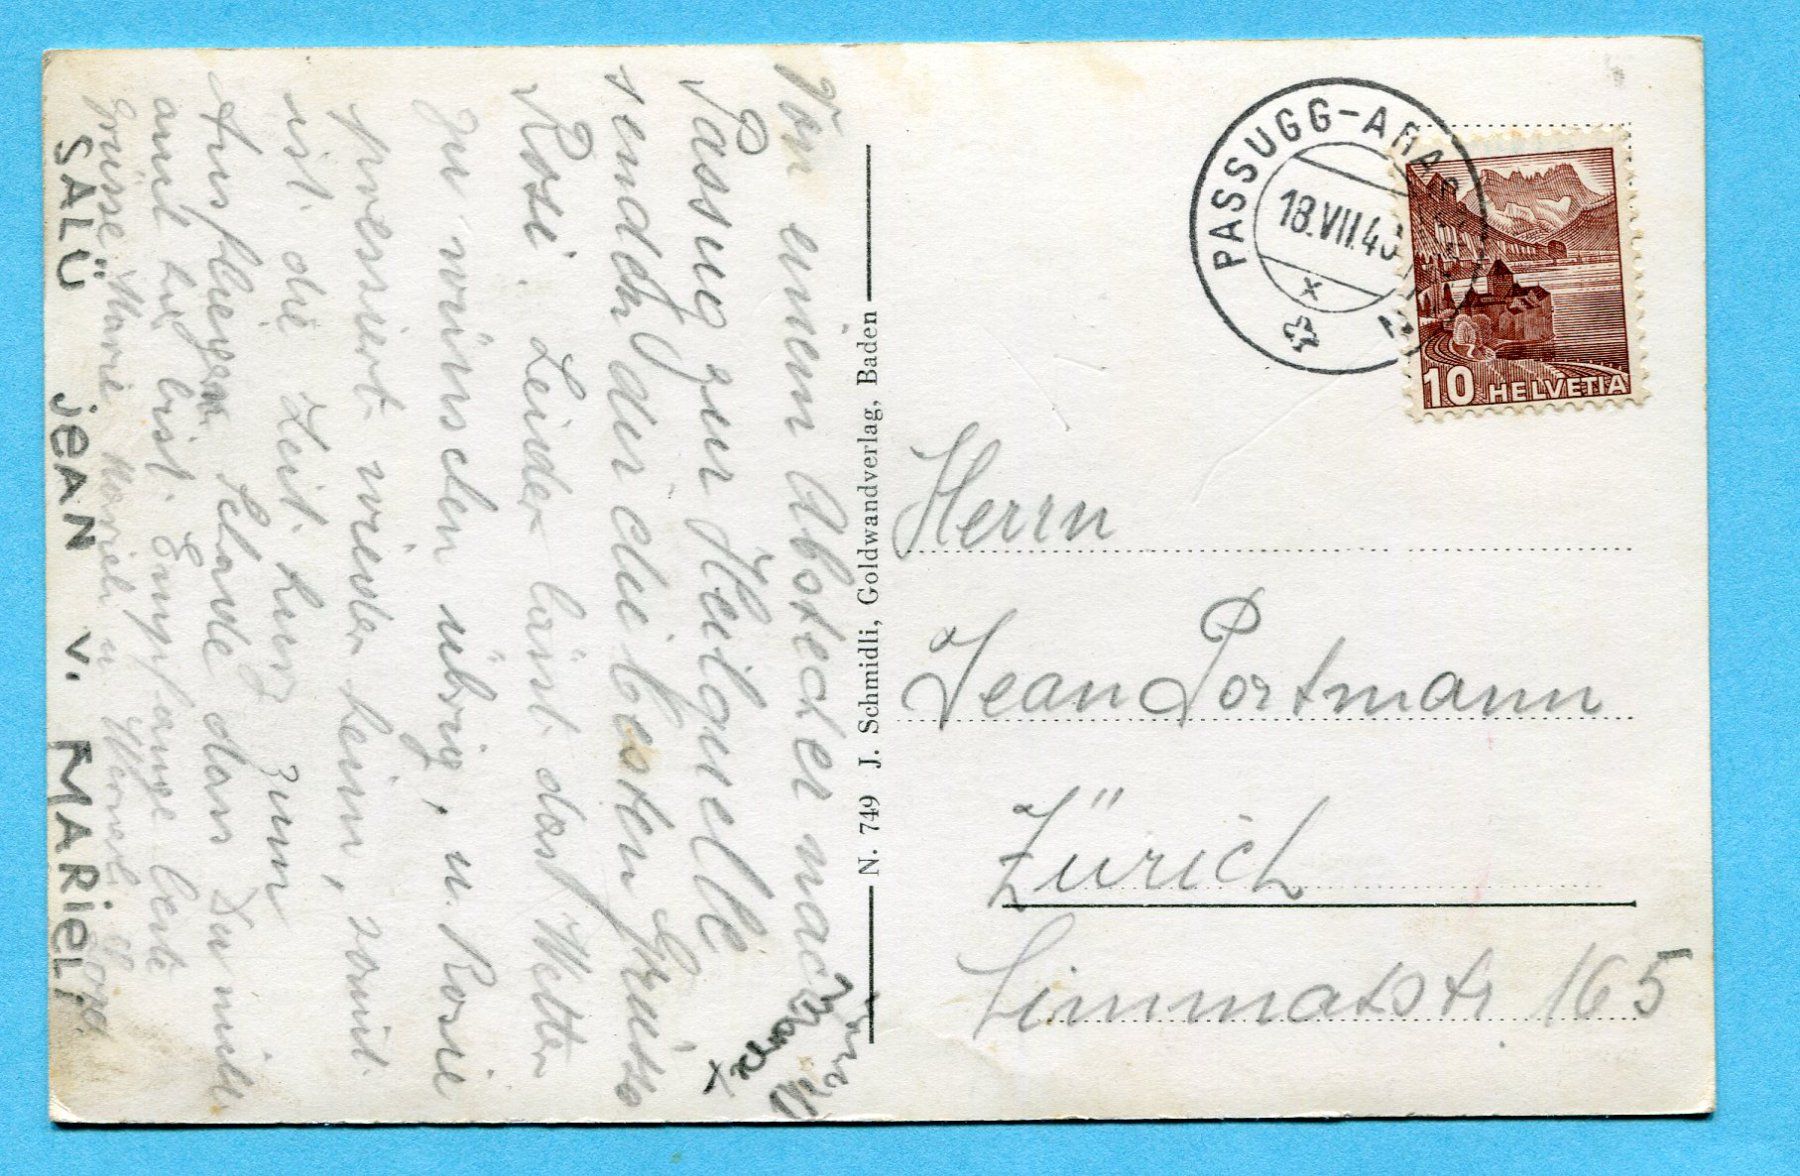 Von einem Abstecher nach
Passug zur Heilquelle
senden dir die besten Grüsse
Rosi. Leider lässt das Wetter
zu wünschen übrig, u. Rosie
pressiert wieder heim, somit
ist die Zeit kurz zum
Ausfliegen. Schade dass Du nicht
auch hie bist. Empfange beste
Grüsse Marie Marieli u.
SALÜ JEAN v. MARIELI
N. 749 J. Schmidli, Goldwandverlag, Baden
PASSUGG-ARA
18.VII.4
10 HELVETIA
Herrn
Jean Portmann
Zürich
Limmatstr 165